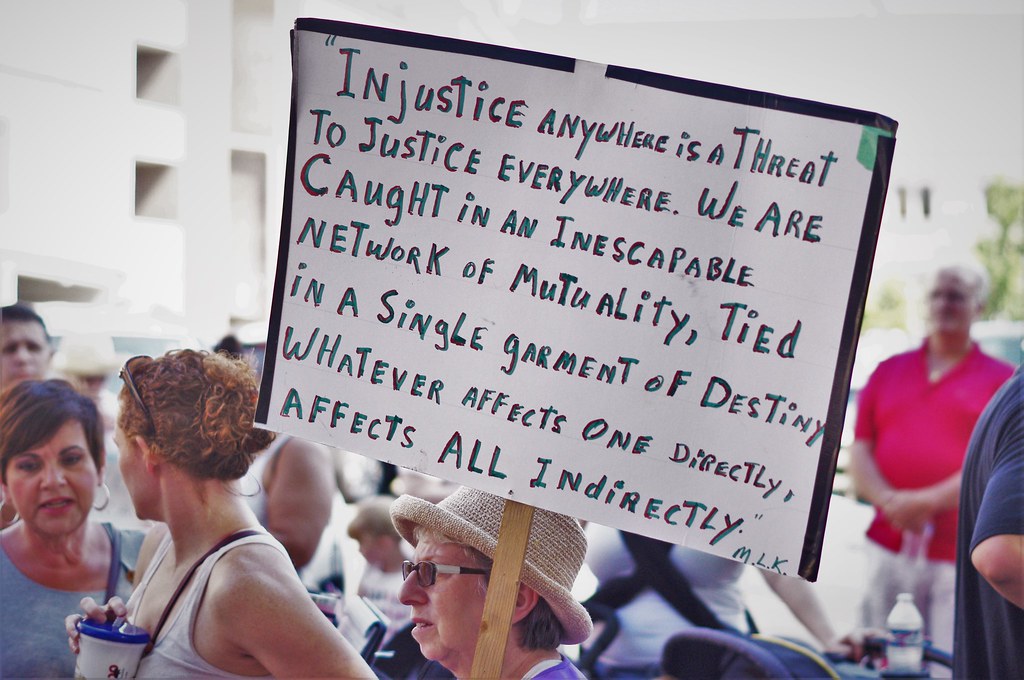 "INJUSTICE ANYWHERE IS A THREAT
TO JUSTICE EVERYWHERE. WE ARE
CAUGHT IN AN INESCAPABLE
NETWORK OF MUTUALITY, TIED
IN A SINGLE GARMENT OF DESTINY
WHATEVER AFFECTS ONE DIRECTLY,
AFFECTS ALL INDIRECTLY."
M.L.K